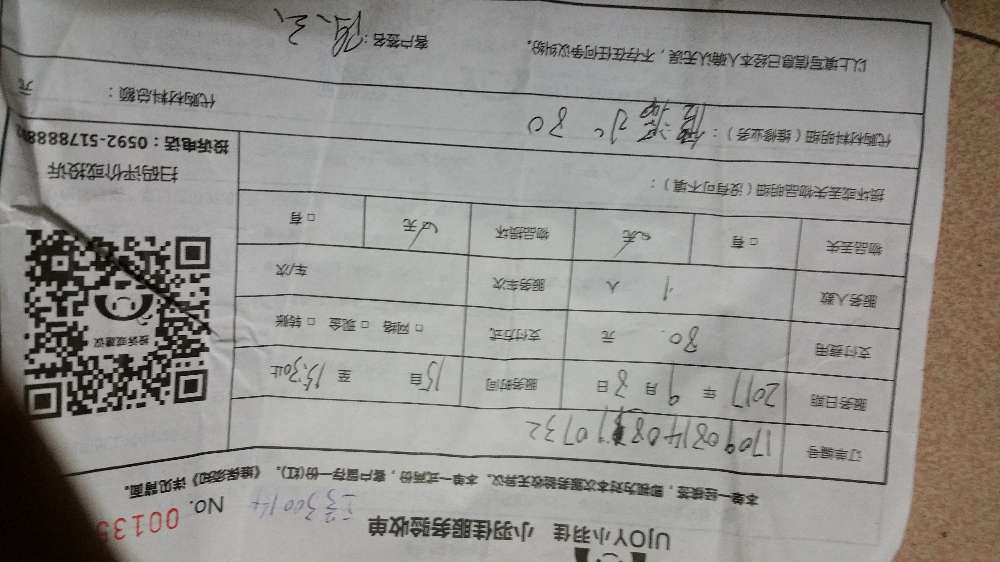 UJOY小羽佳 小羽佳服务验收单
No. 00135
本单一经签签，即视为对本次服务验收无异议。本单一式两份，客户留存一份(红)。《维保须知》详见背面。
订单编号
服务日期 2017 年 9 月 8 日 服务时间 15 自 至 15:30止
支付费用 80. 元 支付方式 □ 网络 □ 现金 □ 转账
服务人数 1 人 服务车次 车/次
物品丢失 □ 有 无 物品损坏 无 □ 有
损坏或丢失物品明细（没有可不填）：
代购材料明细（维修业务）： 80
代购材料总额： 元
以上填写信息已经本人确认无误，不存在任何争议纠纷。 客户签名：
投诉或建议
扫码评价或投诉
投诉电话：0592-5178888